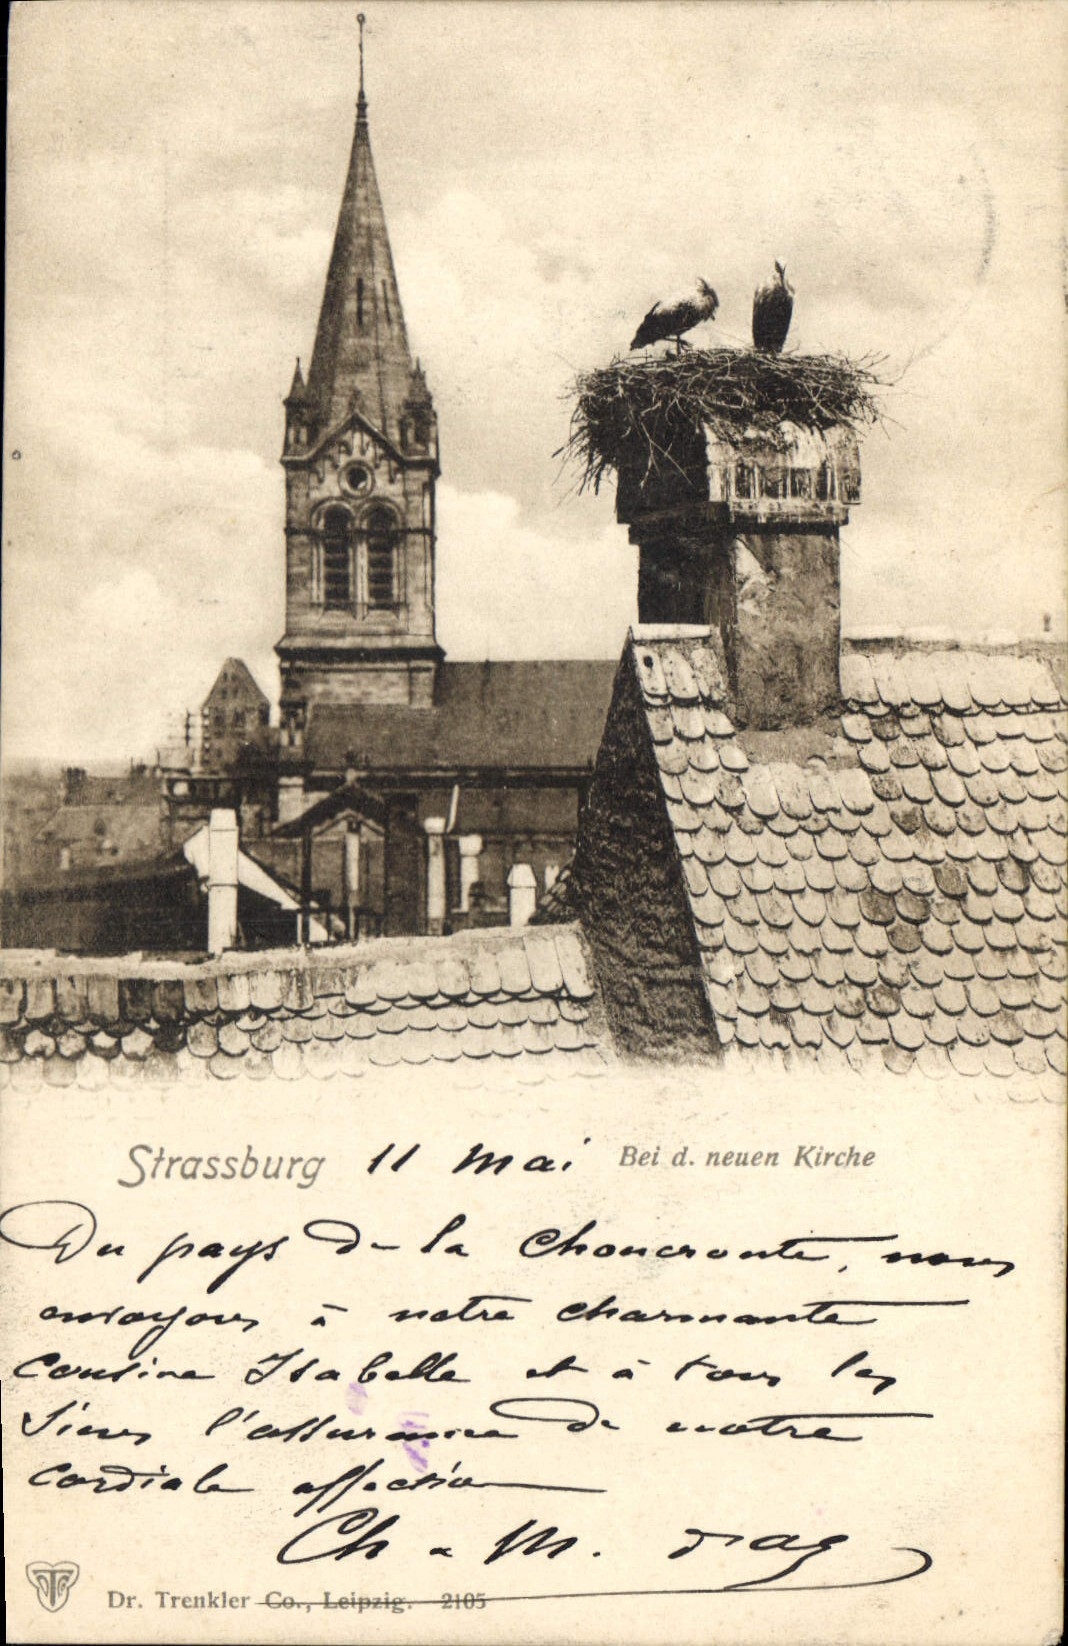 Strassburg 11 Mai Bei d. neuen Kirche
Du pays de la Choucroute, nous
envoyons à notre charmante
Cousine Isabelle et à tous les
Siens l'assurance de notre
cordiale affection
Ch M.
Dr. Trenkler Co., Leipzig. 2105